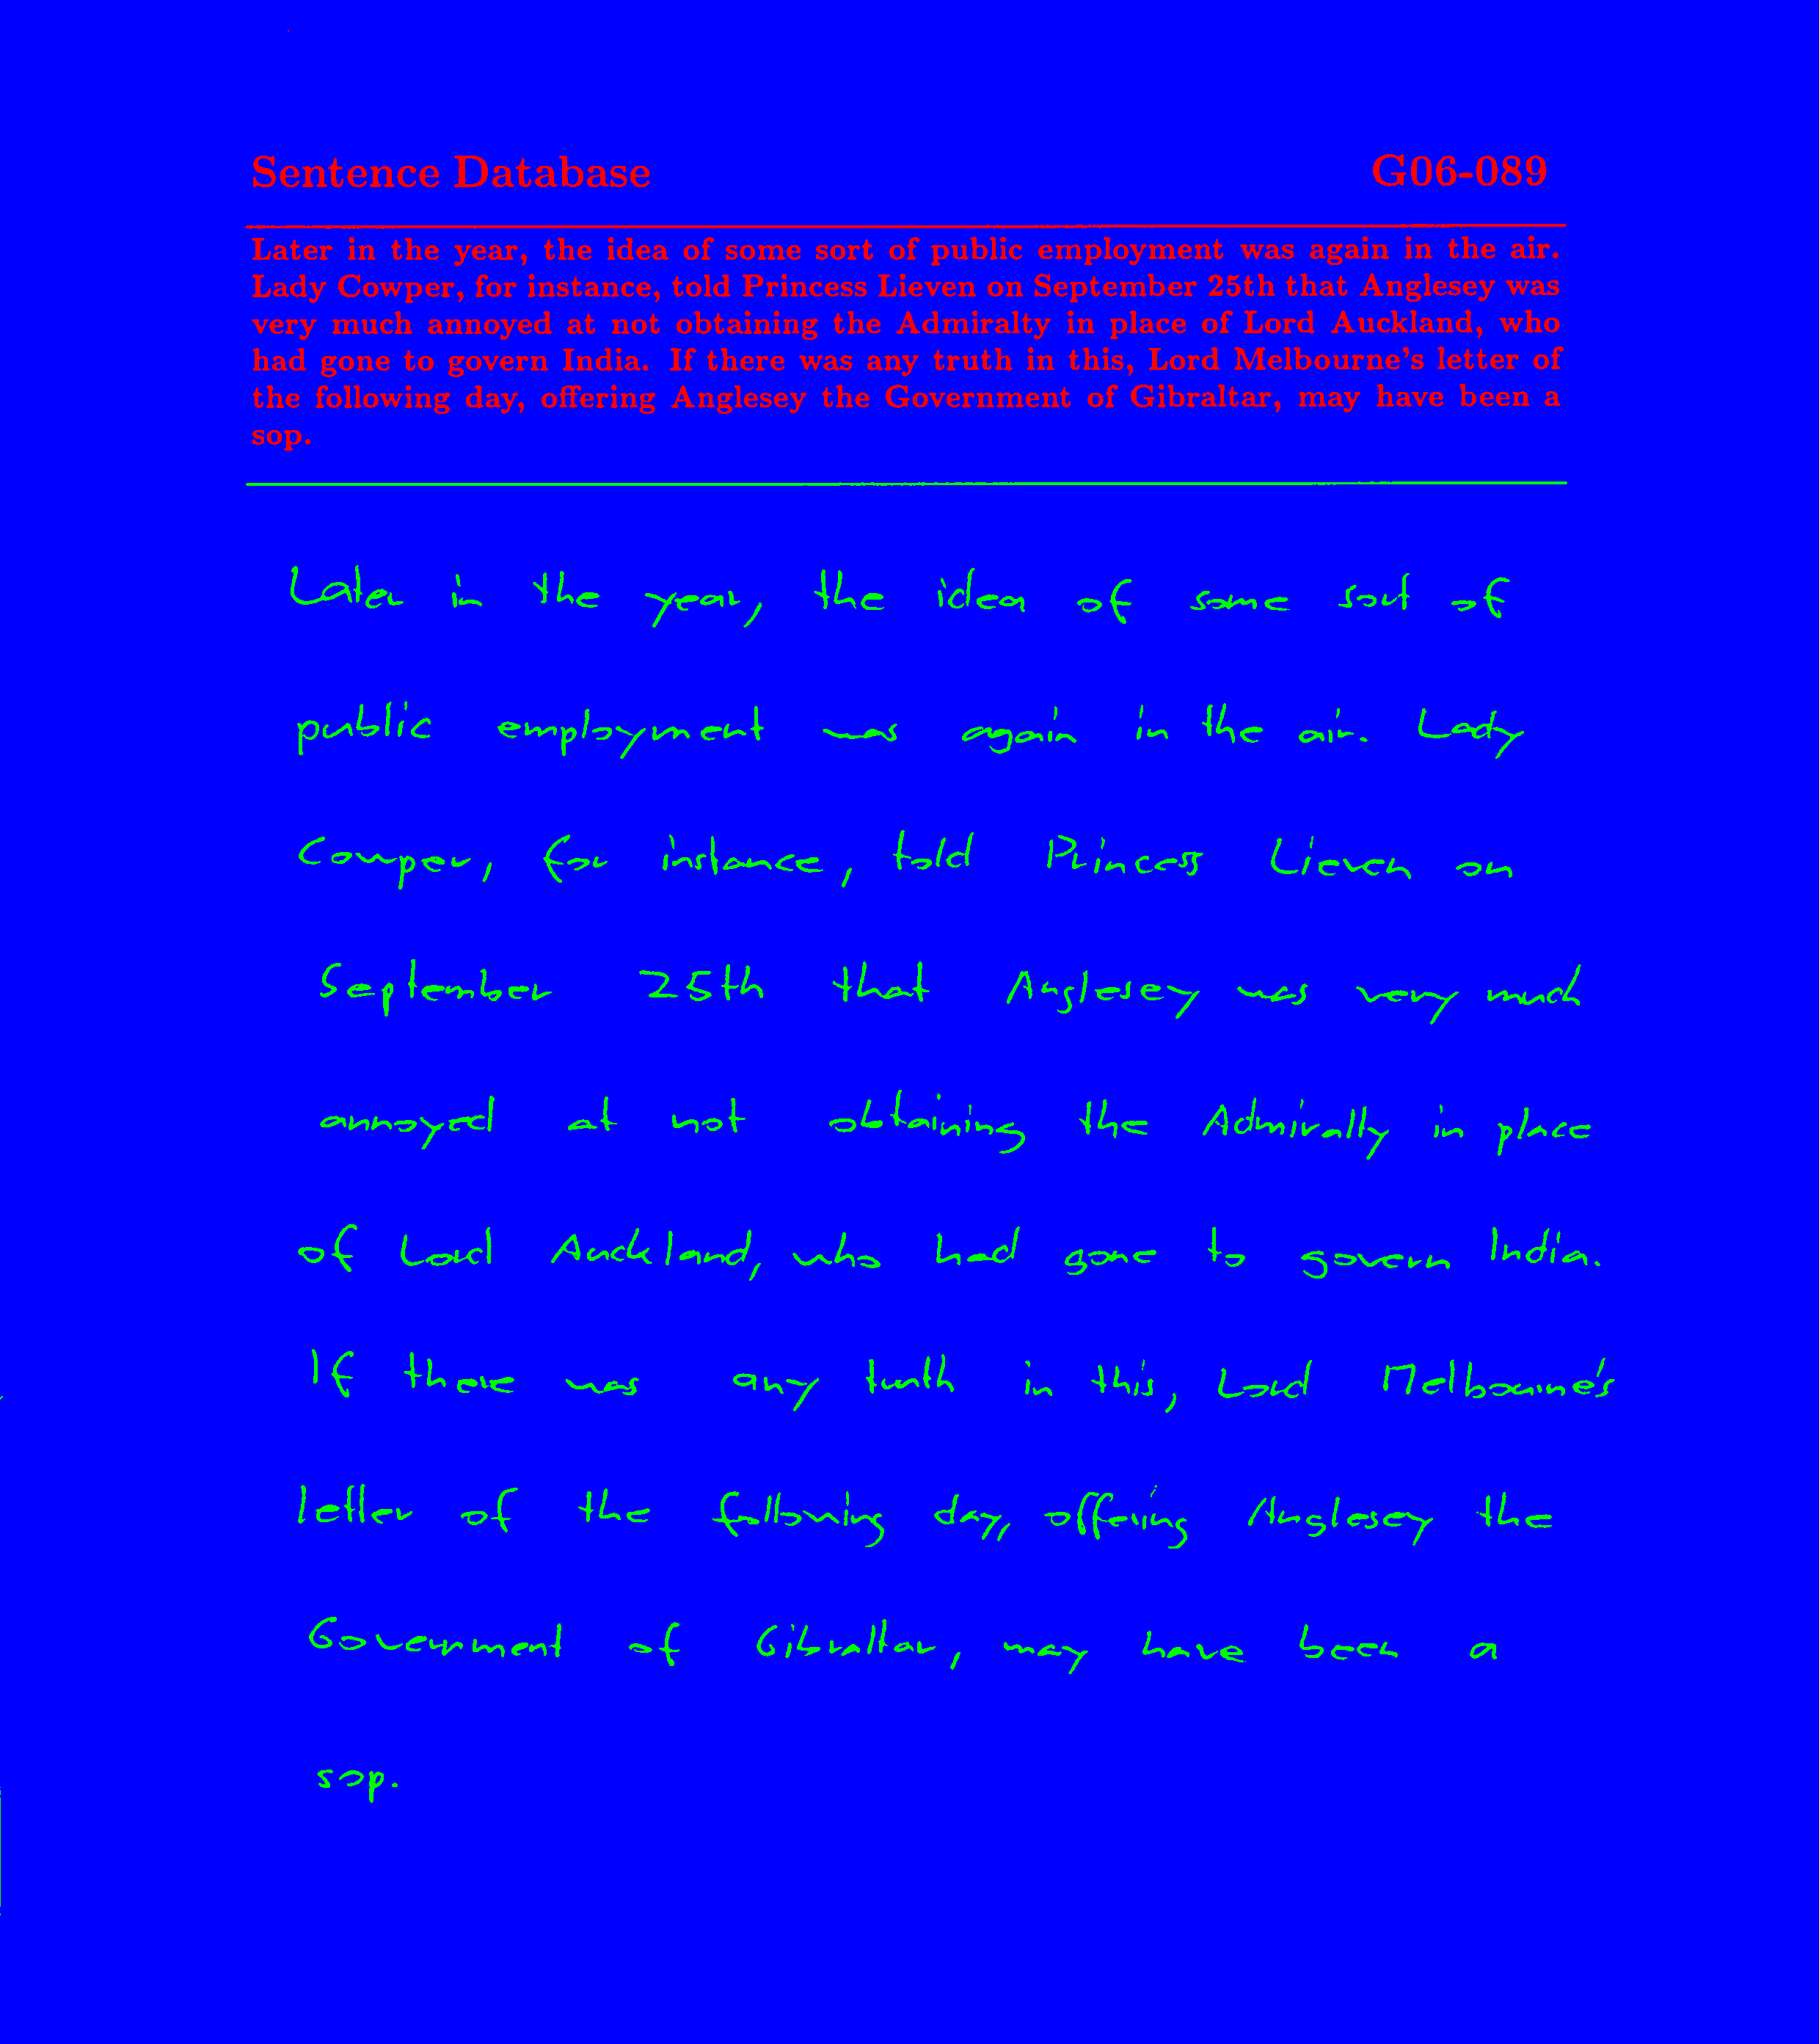 Sentence Database G06-089
Later in the year, the idea of some sort of public employment was again in the air.
Lady Cowper, for instance, told Princess Lieven on September 25th that Anglesey was
very much annoyed at not obtaining the Admiralty in place of Lord Auckland, who
had gone to govern India. If there was any truth in this, Lord Melbourne's letter of
the following day, offering Anglesey the Government of Gibraltar, may have been a
sop.
Later in the year, the idea of some sort of
public employment was again in the air. Lady
Cowper, for instance, told Princess Lieven on
September 25th that Anglesey was very much
annoyed at not obtaining the Admiralty in place
of Lord Auckland, who had gone to govern India.
If there was any truth in this, Lord Melbourne's
letter of the following day, offering Anglesey the
Government of Gibraltar, may have been a
sop.